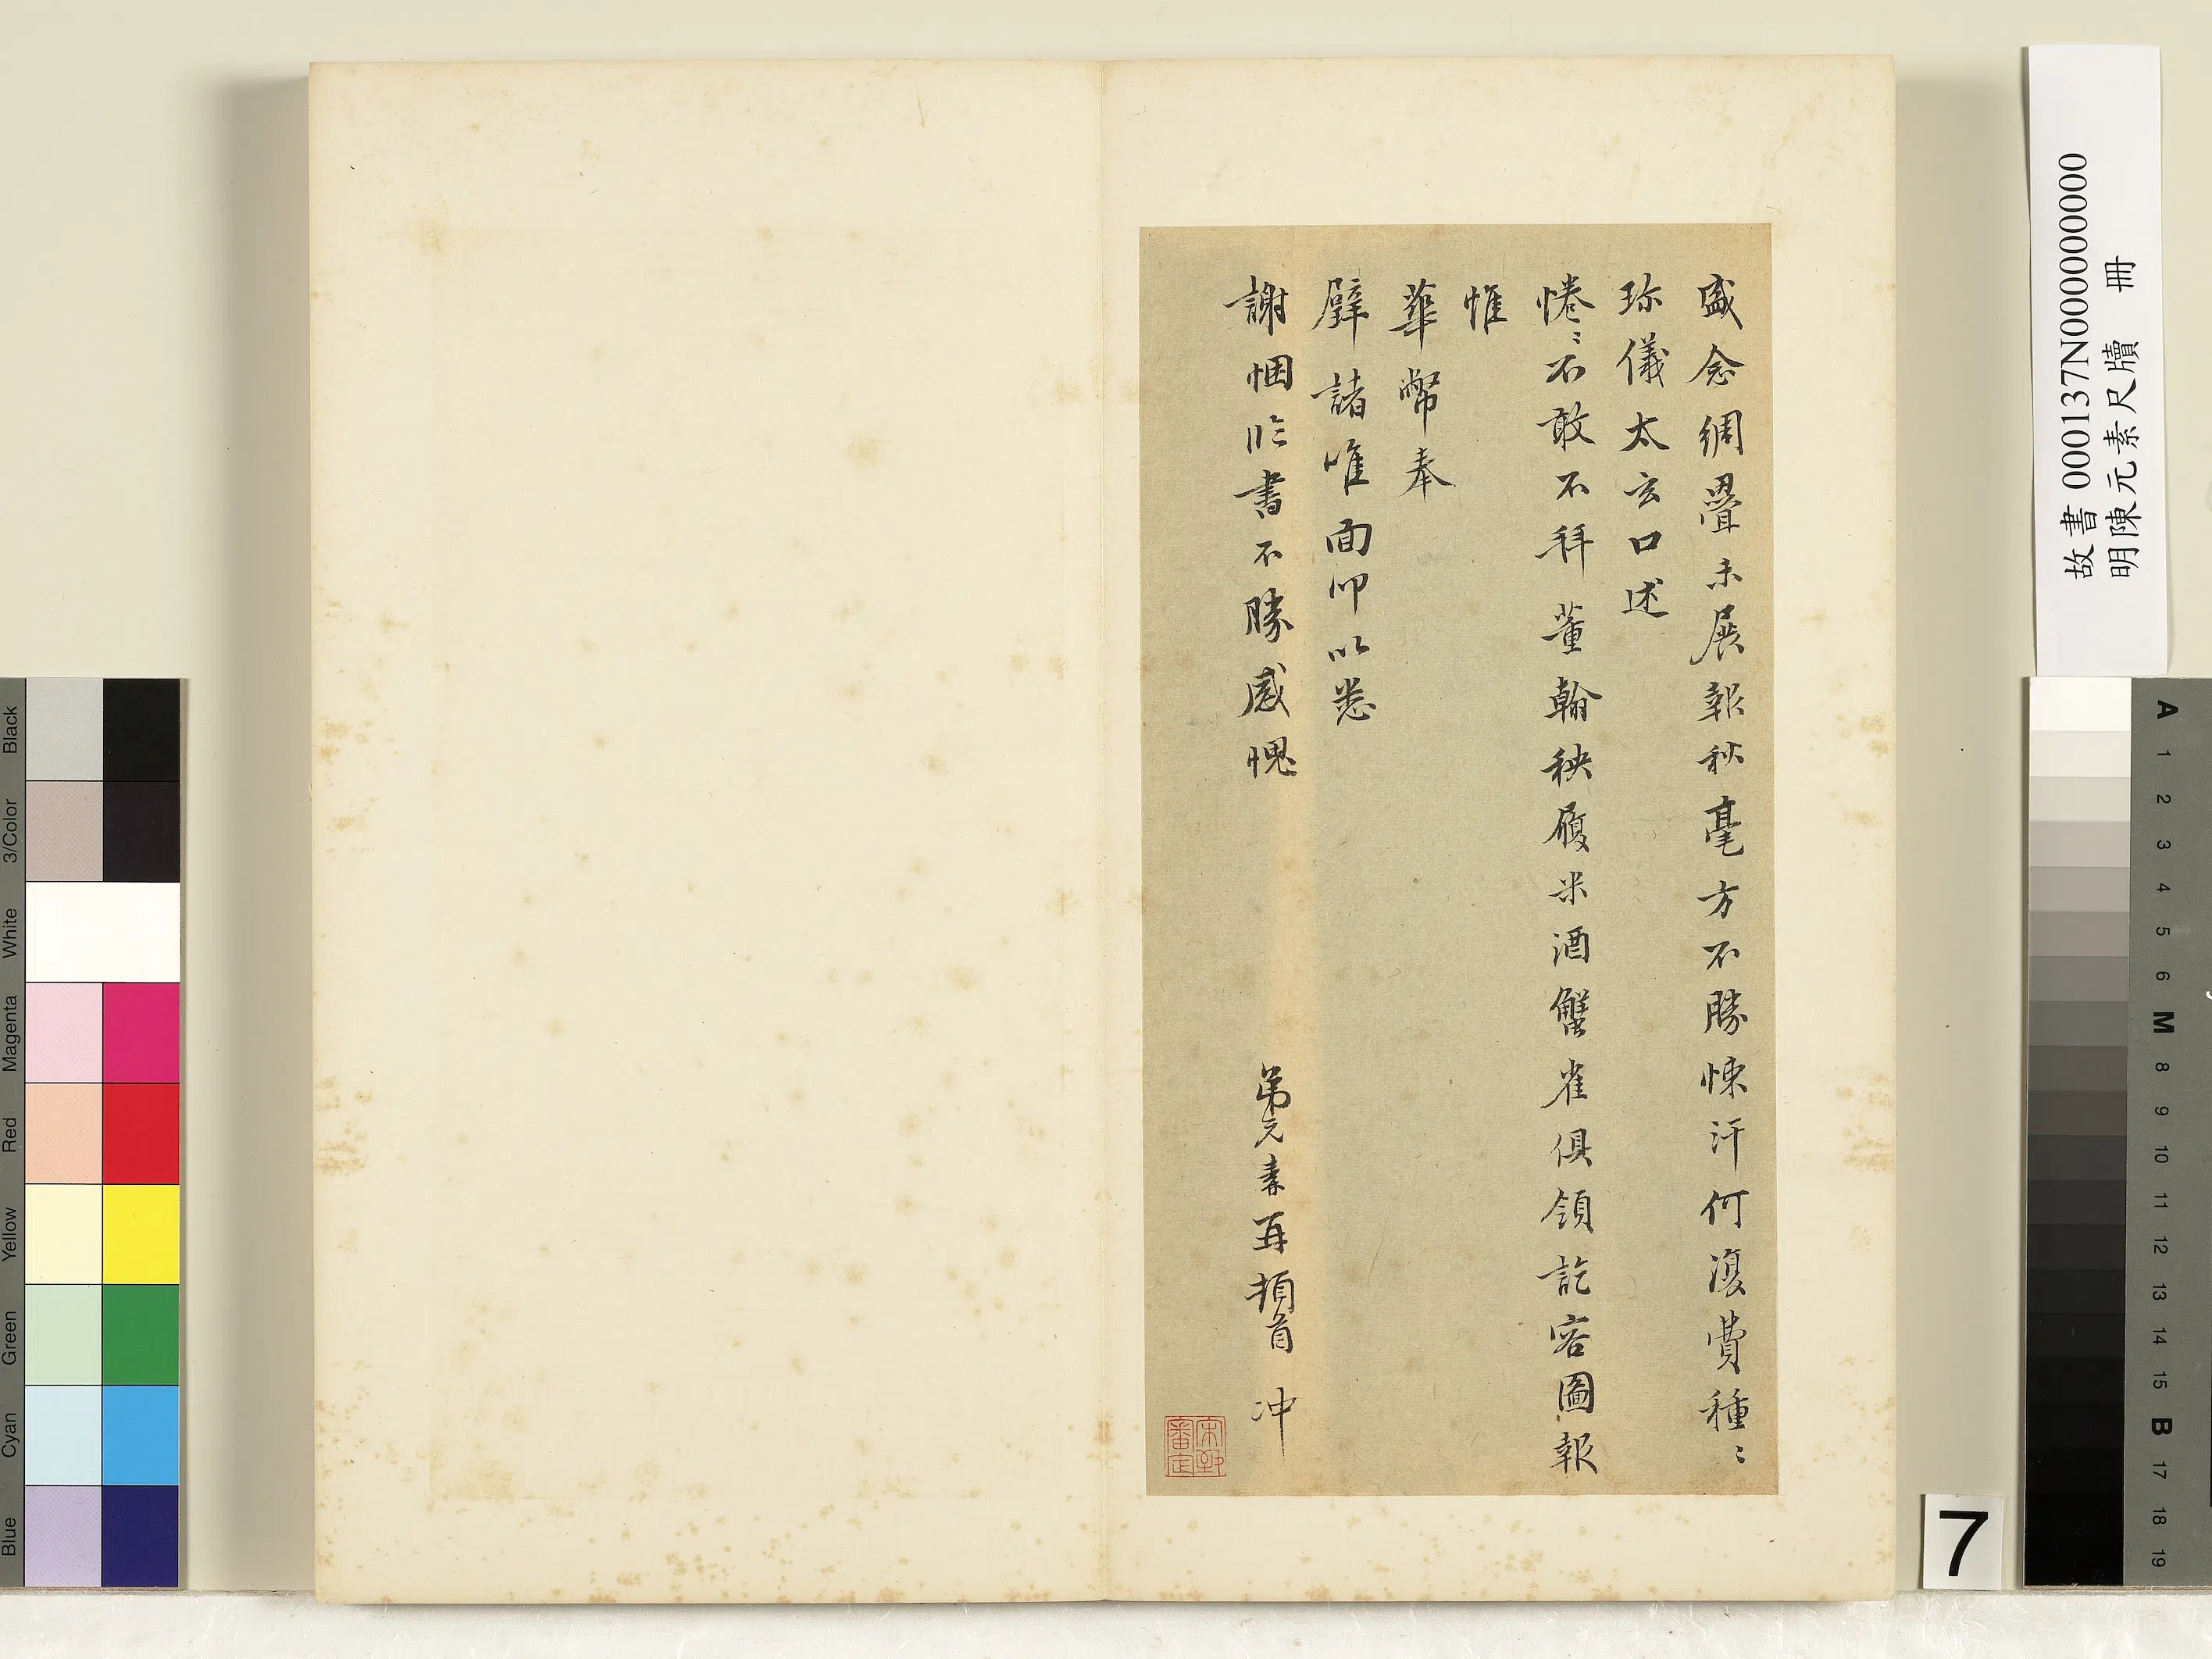 盛念綢疊未展報秋毫方不勝悚汗何復費種〻
珎儀太玄口述
惓〻不敢不拜董翰秧履米酒蟹雀俱領訖容圖報
惟
華幣奉
璧諸唯面叩以悉
謝悃臨書不勝感愧
弟元素再頓首 冲
故書 000137N000000000
明陳元素尺牘 冊
7
Black
3/Color
White
Magenta
Red
Yellow
Green
Cyan
Blue
A
1
2
3
4
5
6
M
8
9
10
11
12
13
14
15
B
17
18
19